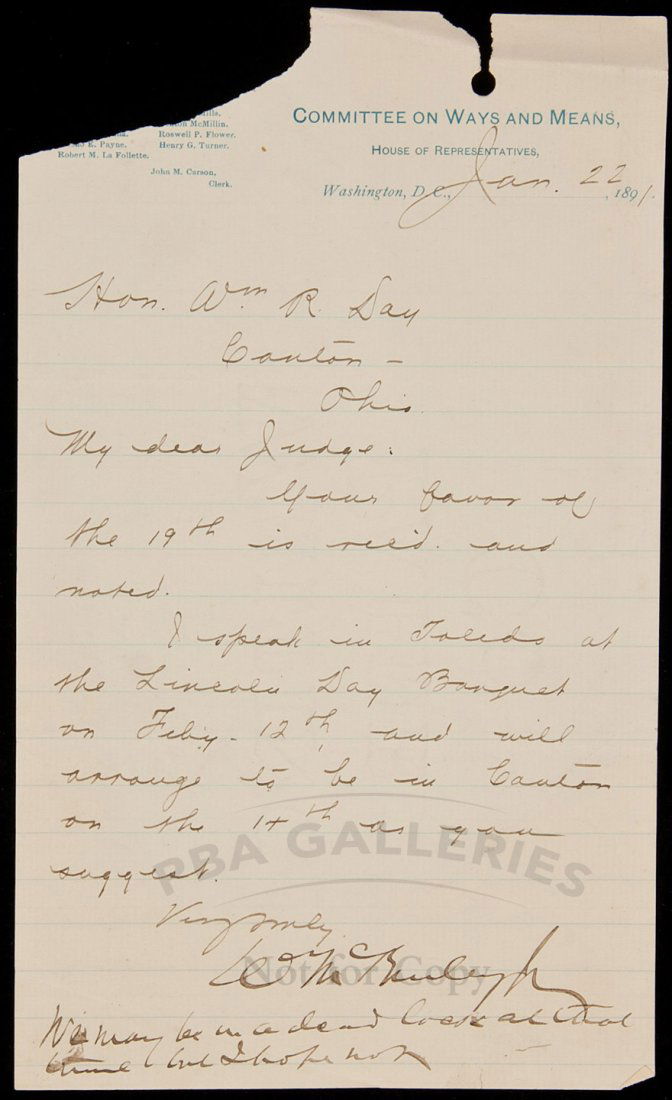 Mills.
McMillin.
Roswell P. Flower.
E. Payne. Henry G. Turner.
Robert M. La Follette.
John M. Carson,
Clerk.
COMMITTEE ON WAYS AND MEANS,
HOUSE OF REPRESENTATIVES,
Washington, D. C., Jan. 22, 1891.
Hon. Wm R. Day
Canton -
Ohio.
My dear Judge:
Your favor of
the 19th is rec'd. and
noted.
I speak in Toledo at
the Lincoln Day Banquet
on Feby. 12th, and will
arrange to be in Canton
on the 14th as you
suggest.
PBA GALLERIES
Very truly
Wm McKinley Jr
Not for Copy
We may be in a dead lock at that
time but I hope not